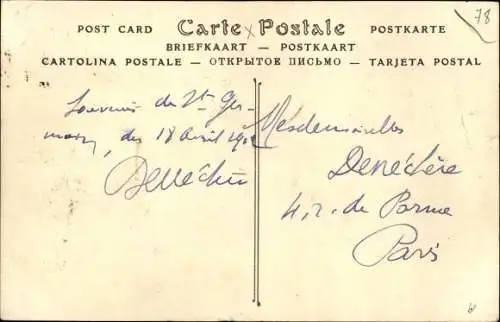 78
POST CARD Carte Postale POSTKARTE
BRIEFKAART — POSTKAART
CARTOLINA POSTALE — ОТКРЫТОЕ ПИСЬМО — TARJETA POSTAL
Souvenir de St Ger-
du 18 avril
Denéchère
Mesdemoiselles
Denéchère
4, r. de Parme
Paris